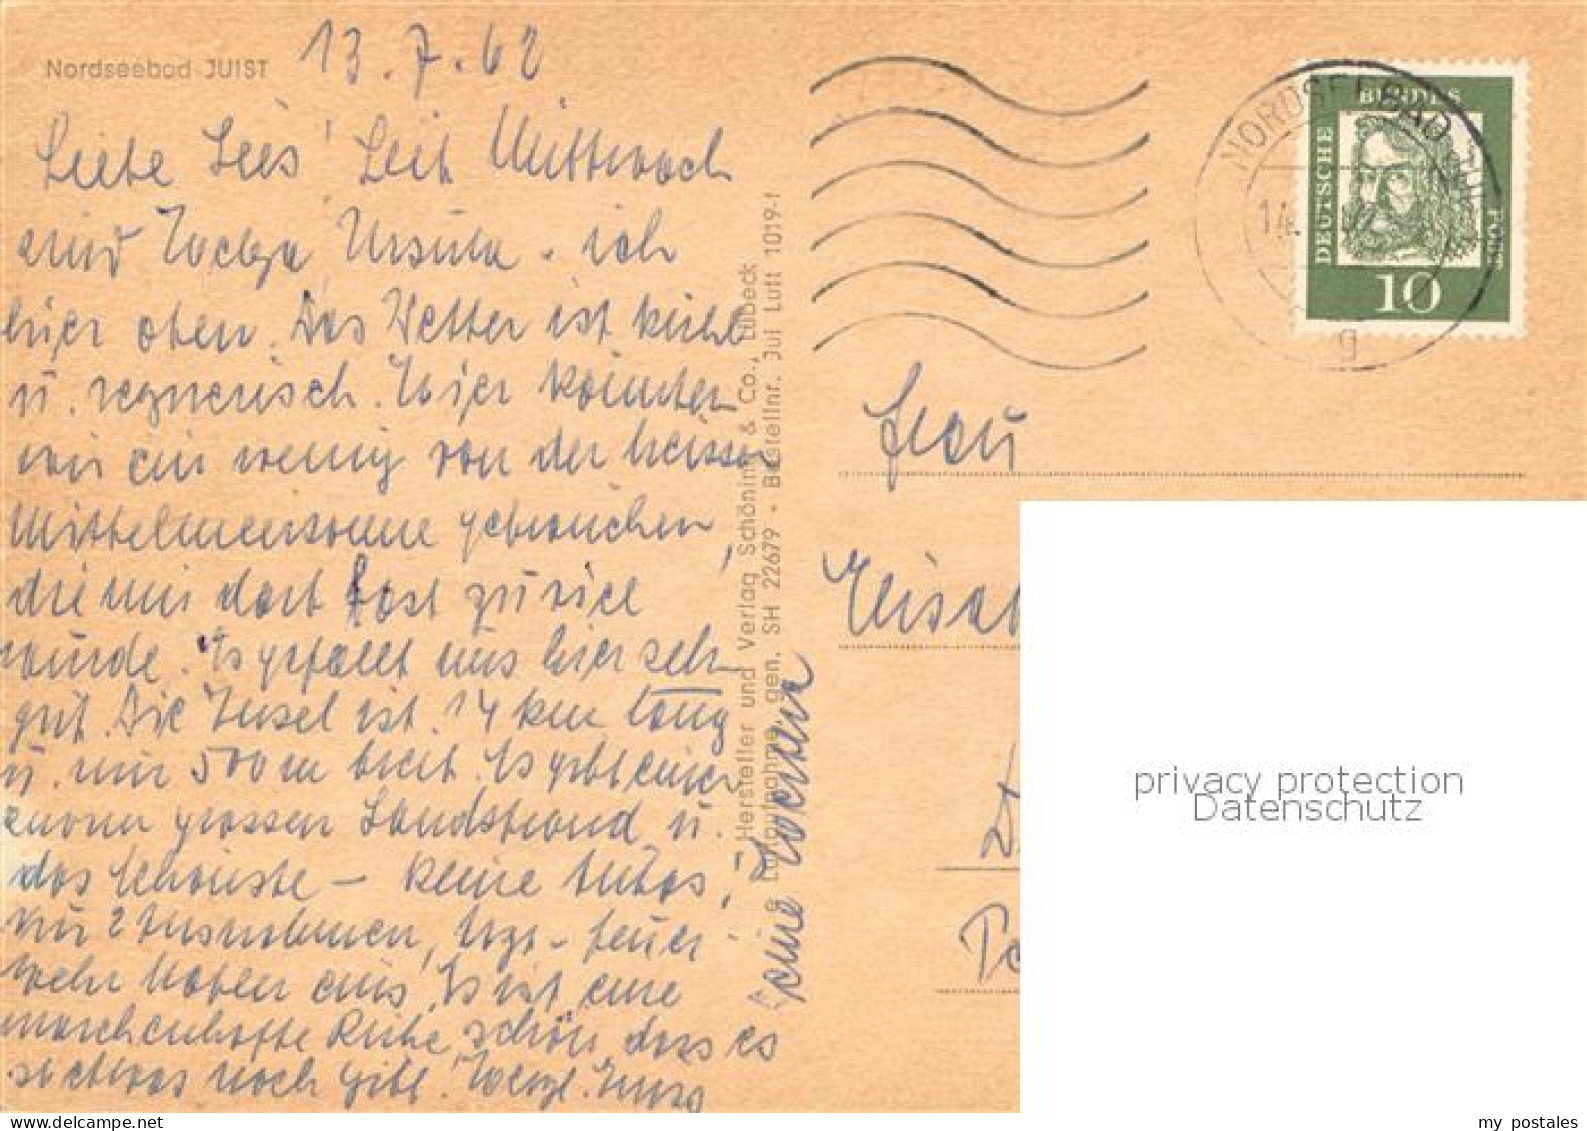 Nordseebad JUIST
13.7.62
Liebe Lies! Seit Mittwoch
sind Helga Ursula u. ich
hier oben. Das Wetter ist kühl
u. regnerisch. Hier könnten
wir ein wenig von der heissen
Mittelmeersonne gebrauchen,
die mir dort fast zu viel
wurde. Es gefällt uns hier sehr
gut. Die Insel ist 14 km lang
u. nur 500 m breit. Es gibt einen
enorm grossen Sandstrand u.
das Schönste – keine Autos,
nur 2 Ausnahmen, Arzt – Feuer
wehr haben eins. Es ist eine
märchenhafte Ruhe, schön dass es
so etwas noch gibt. Herzl. Gruss
eine
Hersteller und Verlag Schöning & Co., Lübeck
Luftaufnahme gen. SH 22679 - Bestellnr. Jui Luft 1019-1
NORDSEEBAD JUIST
14.
g
DEUTSCHE BUNDESPOST
10
Frau
Elisab
D
privacy protection
Datenschutz
my postales